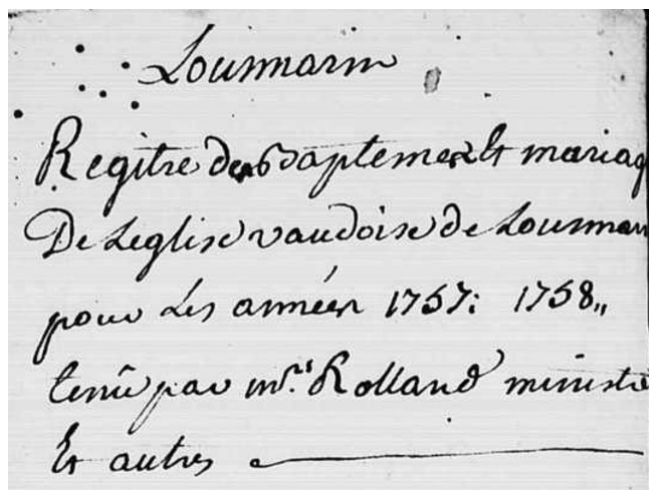 Lourmarin
Regitre des Baptemes Et mariag
De Leglise vaudoise de Lourmar
pour Les années 1757: 1758,,
tenû par mrs Rolland ministre
Et autres